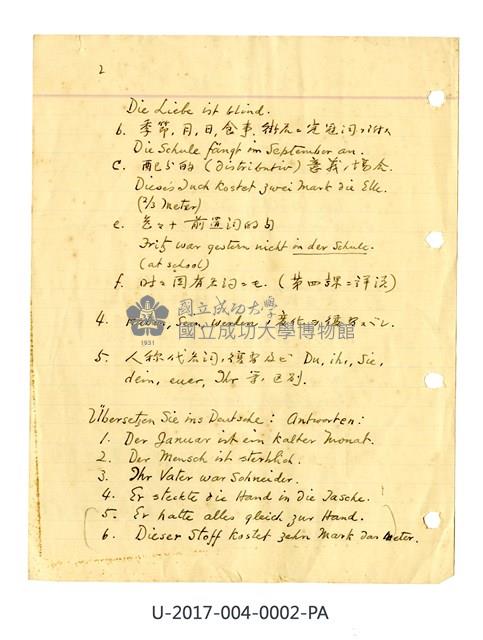 2
Die Liebe ist blind.
b. 季節,月,日,食事,
Die Schule fängt im September an.
c. 配分的 (distributiv) 意義ノ場合.
Dieses Tuch kostet zwei Mark die Elle.
(2/3 Meter)
e. 前置詞的句
Fritz war gestern nicht in der Schule.
(at school)
f. 固有名詞 (第四課ニ詳説)
4. Haben, Sein, Werden
5. 人称代名詞, Du, ihr, Sie,
dein, euer, Ihr 等, 区別.
Übersetzen Sie ins Deutsche: Antworten:
1. Der Januar ist ein kalter Monat.
2. Der Mensch ist sterblich.
3. Ihr Vater war Schneider.
4. Er steckte die Hand in die Tasche.
5. Er hatte alles gleich zur Hand.
6. Dieser Stoff kostet zehn Mark das Meter.
國立成功大學
國立成功大學博物館
1931
U-2017-004-0002-PA